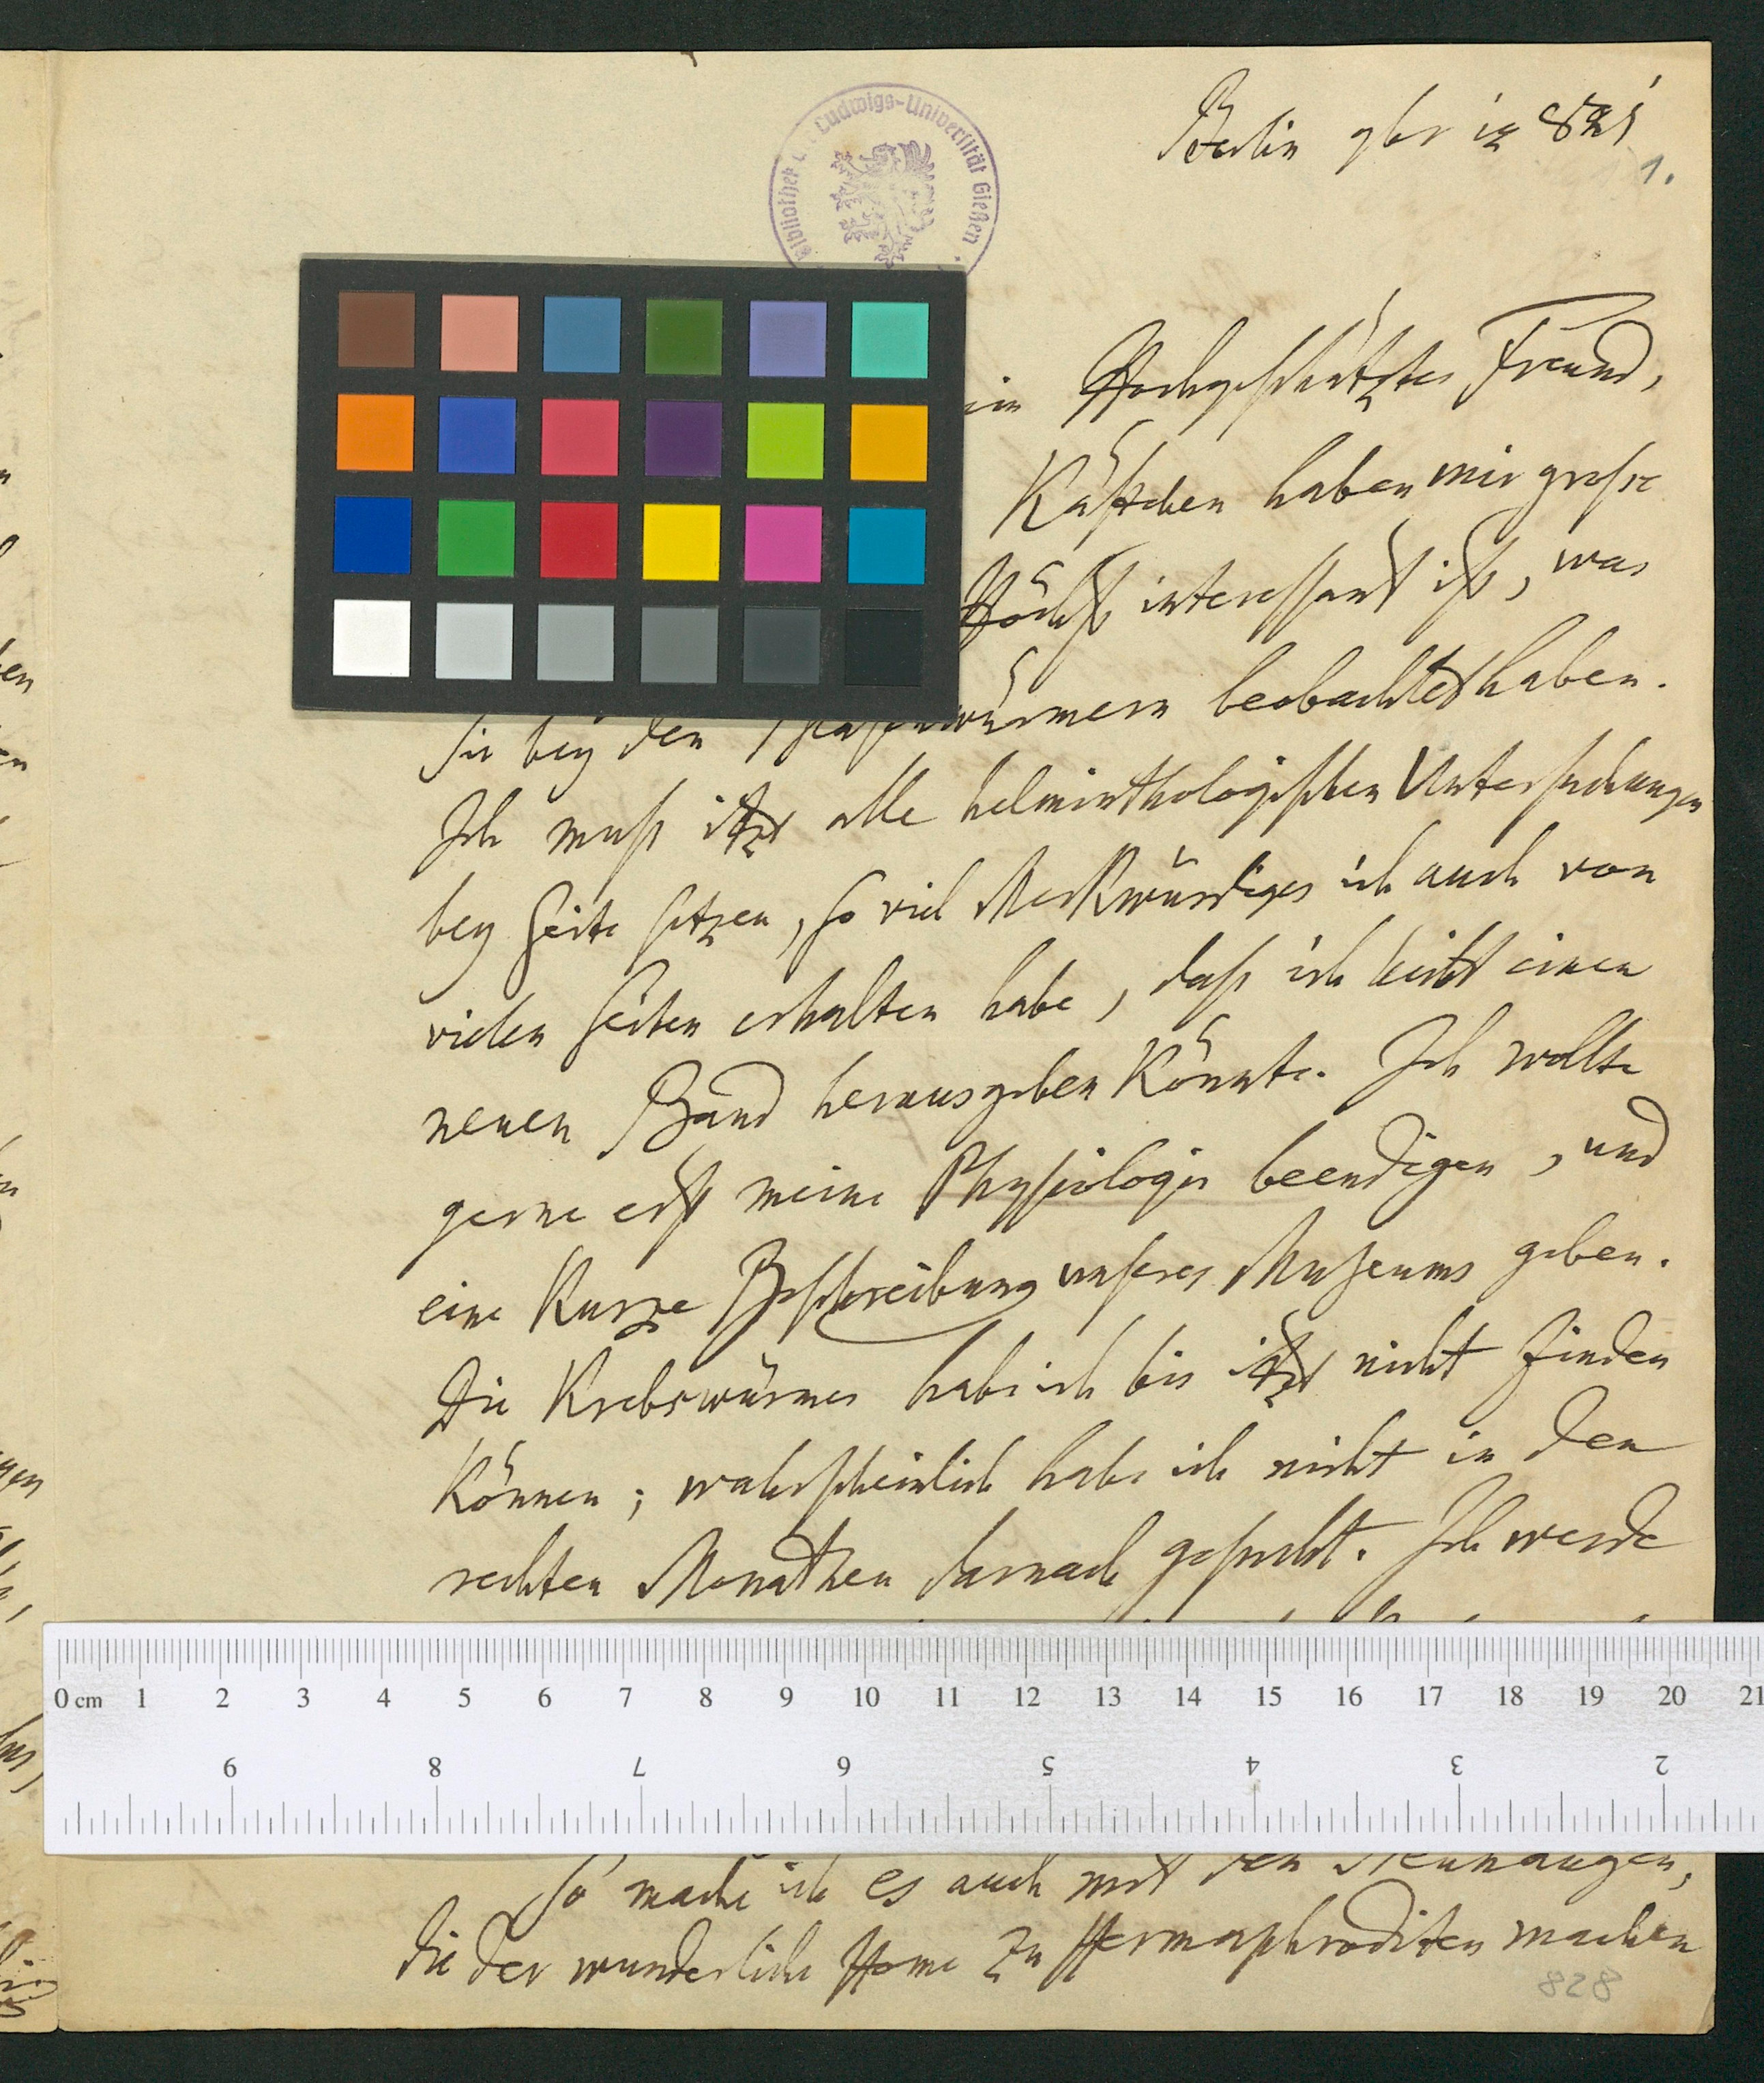 Bibliothek d. Ludwigs-Universität Gießen
Berlin 9br 12 821
1.
Hochgeschätzter Freund,
Kästchen haben mir große
Höchst interessant ist, was
Sie bey den beobachtet haben.
Ich muß itzt alle helminthologischen Untersuchungen
bey Seite setzen, so viel Merkwürdiges ich auch von
vielen Seiten erhalten habe, daß ich leicht einen
neuen Band herausgeben könnte. Ich wollte
gerne erst meine Physiologie beendigen, und
eine kurze Beschreibung unseres Museums geben.
Die Krebswürmer habe ich bis itzt nicht finden
können; wahrscheinlich habe ich nicht in den
rechten Monathen darnach gesucht. Ich werde
0 cm 1 2 3 4 5 6 7 8 9 10 11 12 13 14 15 16 17 18 19 20 21
9 8 7 6 5 4 3 2
So mache ich es auch mit den Neunaugen,
die der wunderliche Home zu Hermaphroditen machen
828